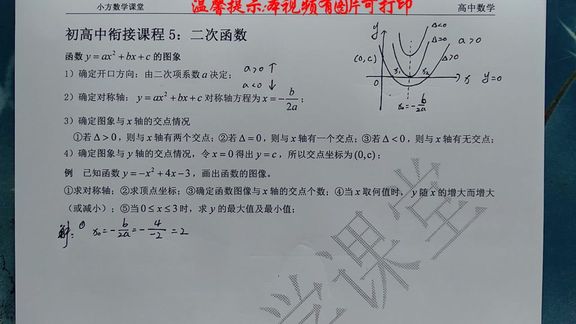 小方数学课堂
温馨提示:本视频有图片可打印
高中数学
初高中衔接课程 5：二次函数
函数 y=ax²+bx+c 的图象
1）确定开口方向：由二次项系数 a 决定； a>0 ↑
a<0 ↓
2）确定对称轴： y=ax²+bx+c 对称轴方程为 x=-b/2a；
3）确定图象与 x 轴的交点情况
①若 Δ>0，则与 x 轴有两个交点；②若 Δ=0，则与 x 轴有一个交点；③若 Δ<0，则与 x 轴有无交点；
4）确定图象与 y 轴的交点情况，令 x=0 得出 y=c，所以交点坐标为(0,c)；
例 已知函数 y=-x²+4x-3，画出函数的图像。
①求对称轴；②求顶点坐标；③确定函数图像与 x 轴的交点个数；④当 x 取何值时，y 随 x 的增大而增大
（或减小）；⑤当 0≤x≤3 时，求 y 的最大值及最小值；
解：① x₀=-b/2a=-4/-2=2
y
Δ<0
Δ=0
a>0
(0,c)
Δ>0
x₁
x₂
0
x
y=0
x₀=-b/2a
学课堂